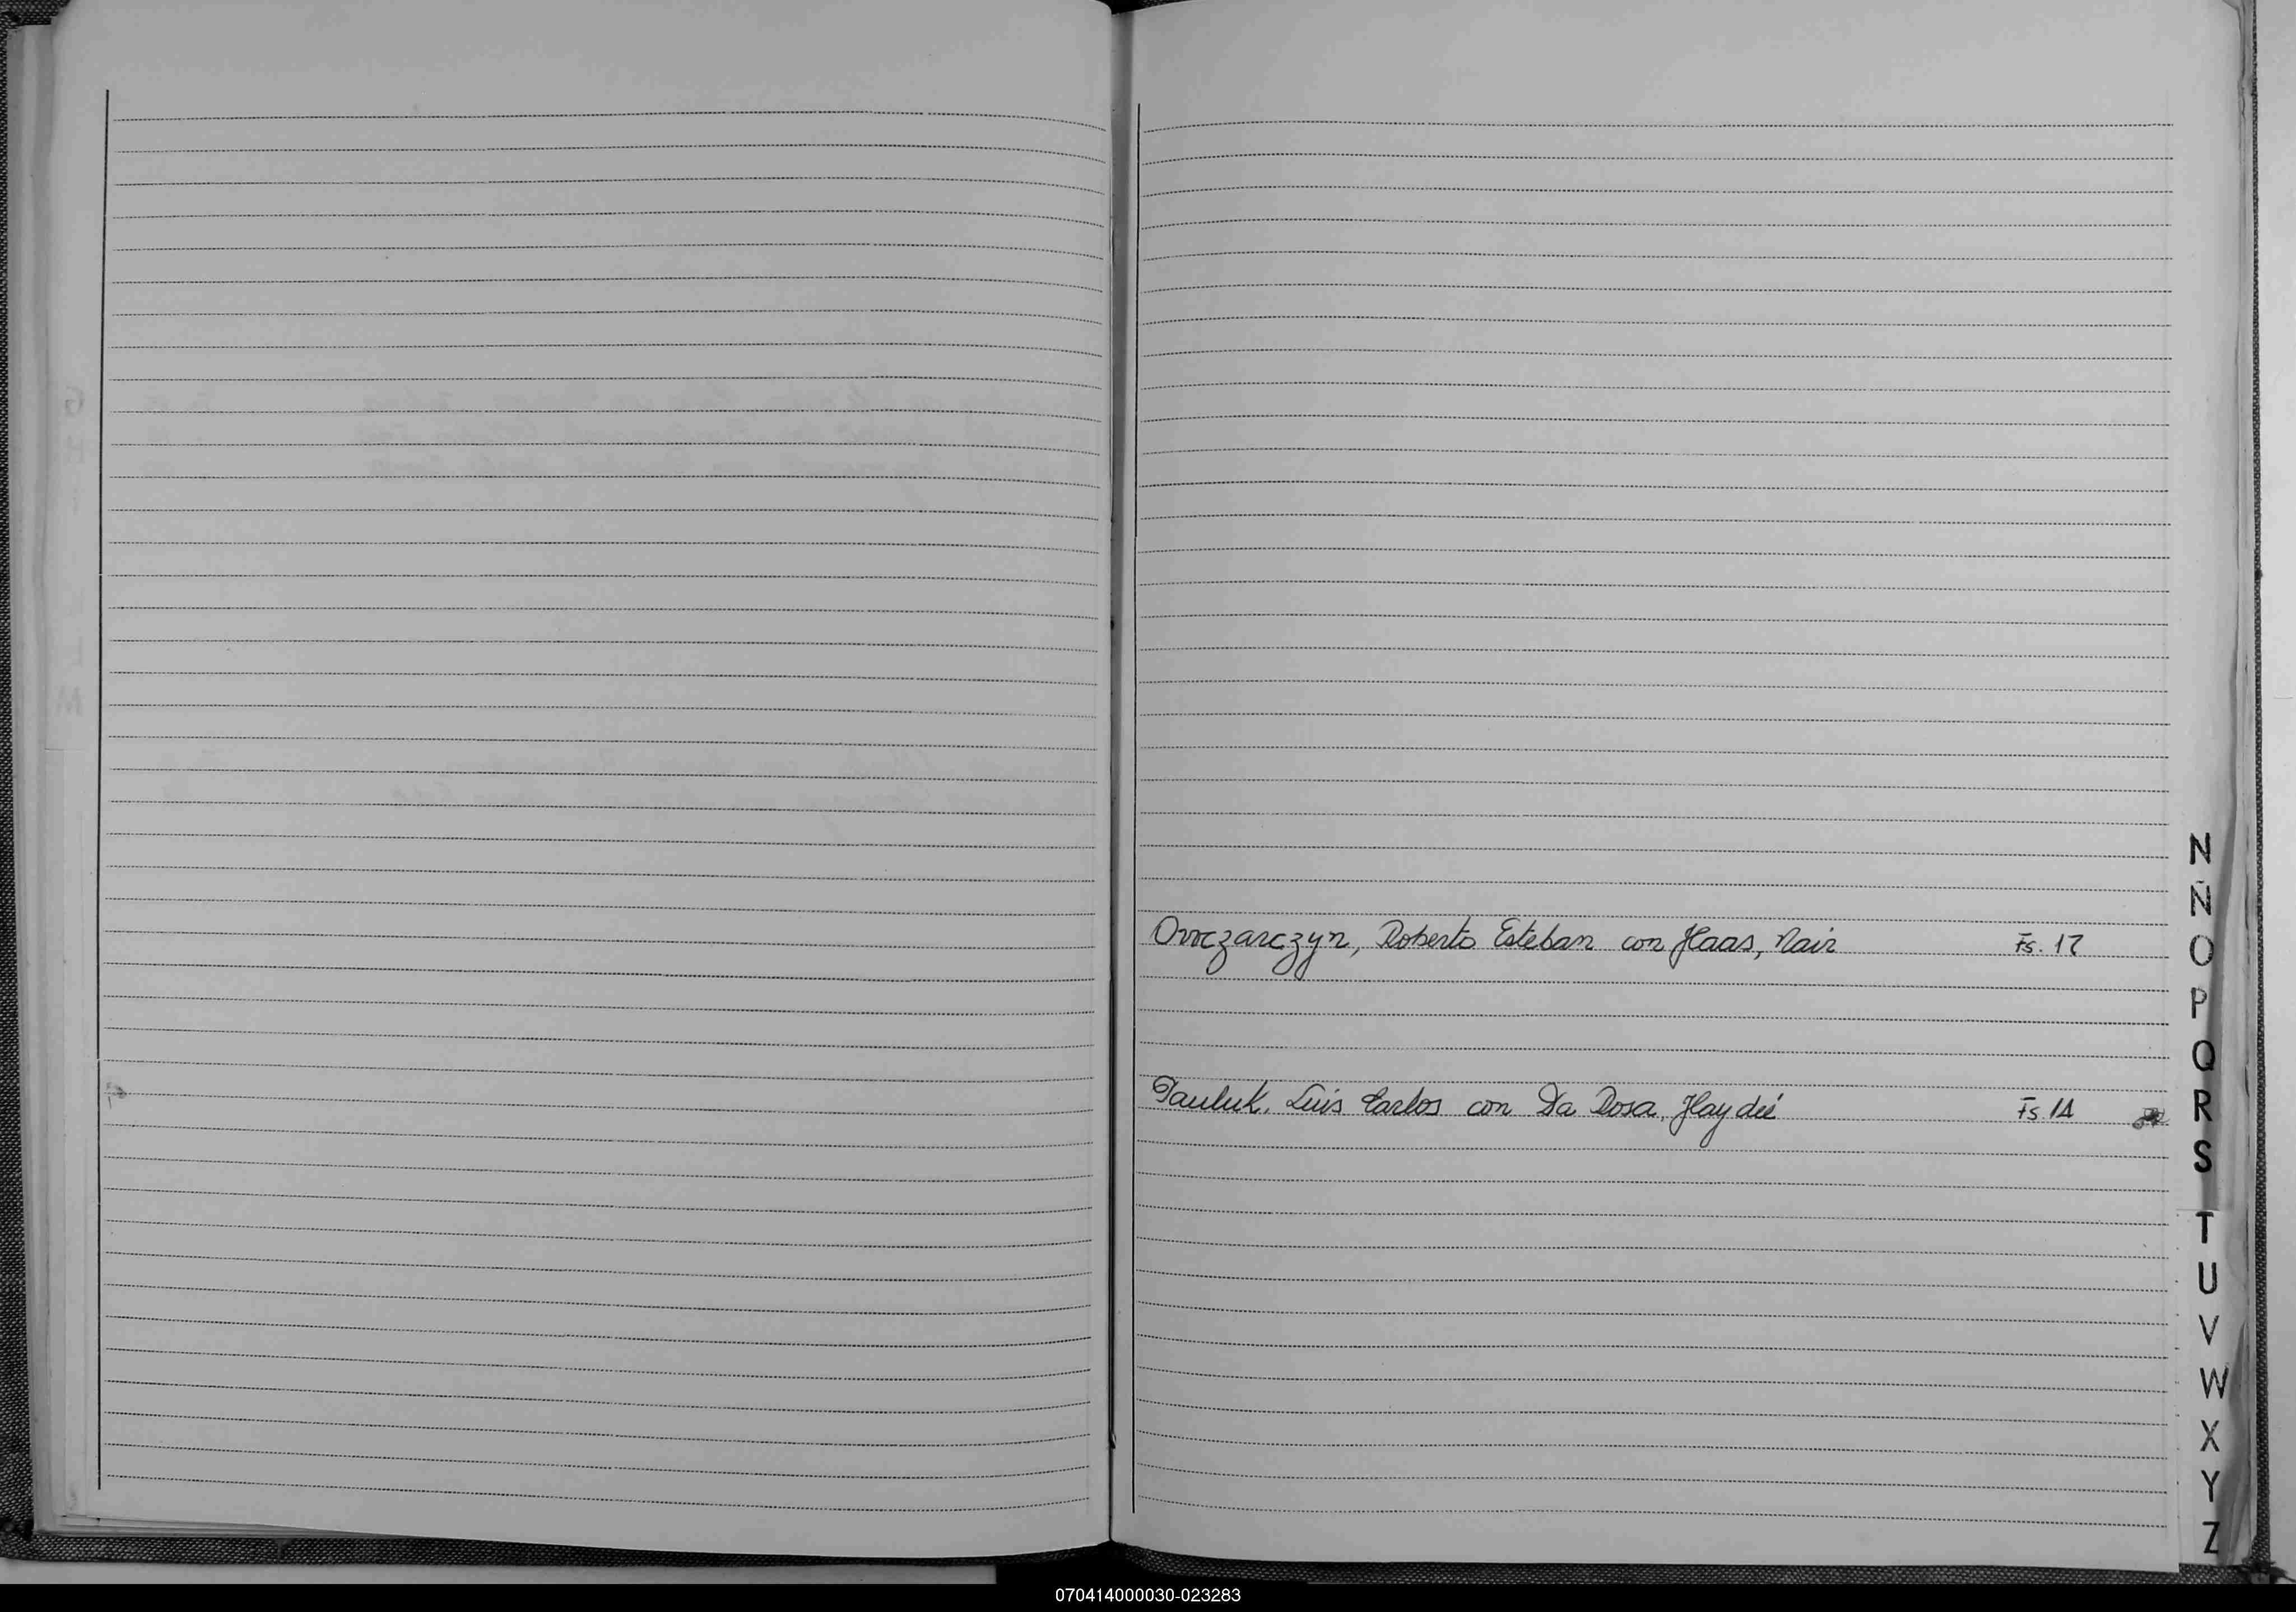 Owczarczyn, Roberto Esteban con Haas, Nair Fs. 17
Pauluk, Luis Carlos con Da Rosa, Haydeé Fs. 14
N
Ñ
O
P
Q
R
S
T
U
V
W
X
Y
Z
070414000030-023283